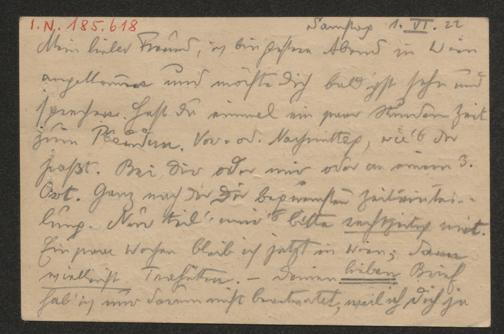 I.N. 185.618
Samstag 1. VI. 22
Mein lieber Freund, ich bin gestern Abend in Wien
angekommen und möchte dich baldigst sehn und
sprechen. Hast du einmal ein paar Stunden Zeit
zum Plaudern. Vor- od. Nachmittag, wie's dir
paßt. Bei dir oder mir oder an einem 3.
Ort. Ganz nach der dir bequemsten Zeiteintei-
lung. Nur teil' mir's bitte rechtzeitig mit.
Ein paar Wochen bleib ich jetzt in Wien, dann
vielleicht . – Deinen lieben Brief
hab' ich nur darum nicht beantwortet, weil ich dich ja